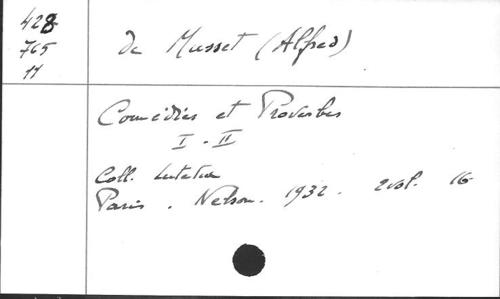 428
765
11
de Musset (Alfred)
Comédies et Proverbes
I - II
Coll. Lutetia
Paris . Nelson . 1932 . 2 vol. 16